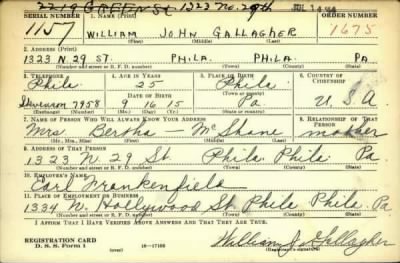 2219 GREEN St 1323 No. 29th JUL 14
SERIAL NUMBER 1. NAME (Print) ORDER NUMBER
1157 WILLIAM JOHN GALLAGHER 1675
(First) (Middle) (Last)
2. ADDRESS (Print)
1323 N 29 ST. PHILA. PHILA. PA.
(Number and street or R. F. D. number) (Town) (County) (State)
3. TELEPHONE 4. AGE IN YEARS 5. PLACE OF BIRTH 6. COUNTRY OF CITIZENSHIP
Phila 25 Phila
DATE OF BIRTH
Stevenson 7958 9 16 15 Pa U.S.A
(Exchange) (Number) (Mo.) (Day) (Yr.) (State or country)
7. NAME OF PERSON WHO WILL ALWAYS KNOW YOUR ADDRESS 8. RELATIONSHIP OF THAT PERSON
Mrs Bertha McShane mother
(Mr., Mrs., Miss) (First) (Middle) (Last)
9. ADDRESS OF THAT PERSON
1323 N. 29 St. Phila Phila Pa
(Number and street or R. F. D. number) (Town) (County) (State)
10. EMPLOYER'S NAME
Earl Frankenfield
11. PLACE OF EMPLOYMENT OR BUSINESS
1334 N. Hollywood St Phila Phila Pa
(Number and street or R. F. D. number) (Town) (County) (State)
I AFFIRM THAT I HAVE VERIFIED ABOVE ANSWERS AND THAT THEY ARE TRUE.
REGISTRATION CARD
D. S. S. Form 1 (over) 16—17105 William J Gallagher
(Registrant's signature)